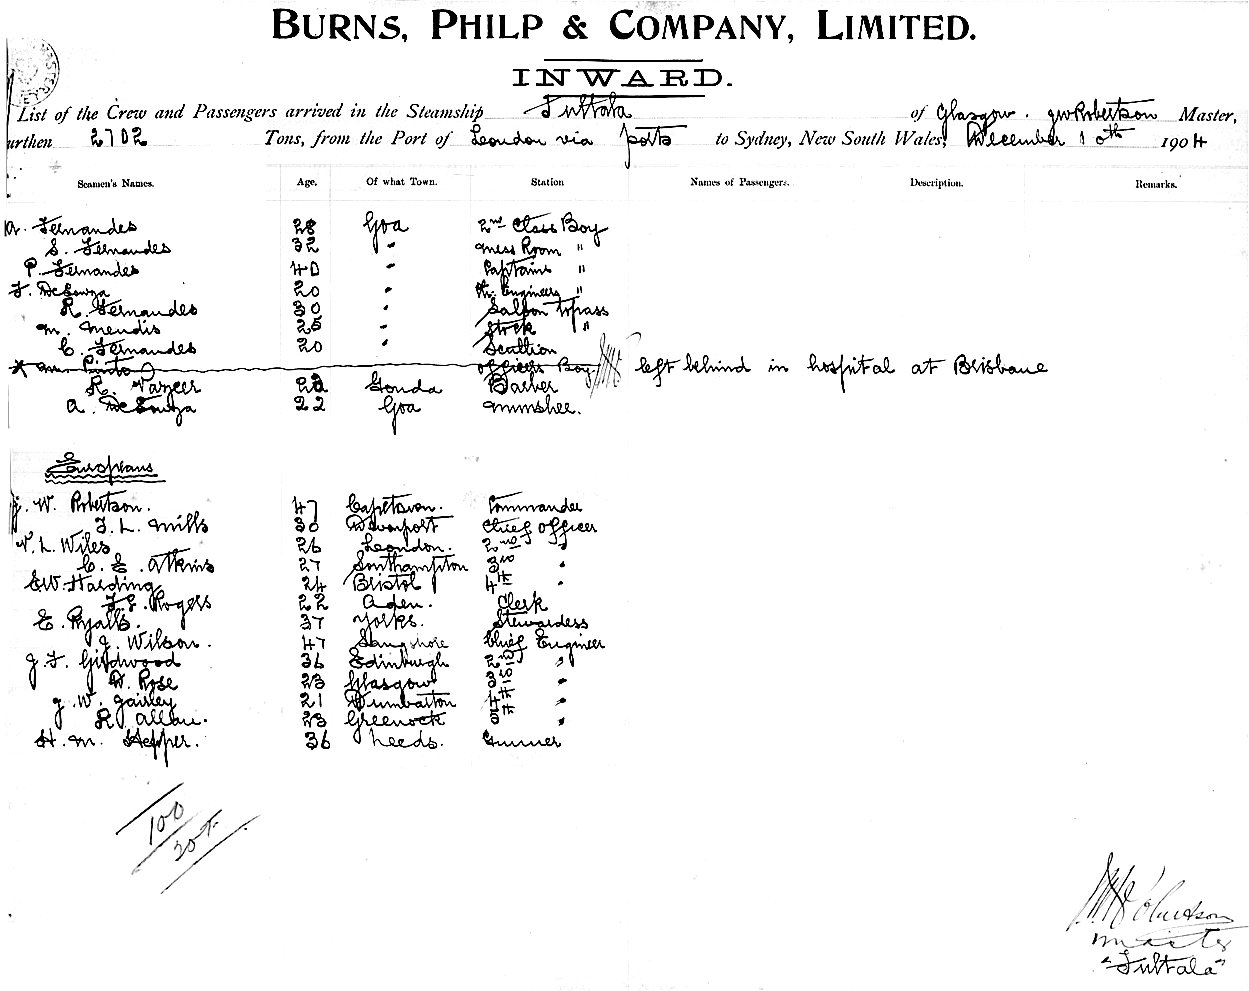 BURNS, PHILP & COMPANY, LIMITED.
INWARD.
List of the Crew and Passengers arrived in the Steamship Fultala of Glasgow. JW Robertson Master,
urthen 2702 Tons, from the Port of London via ports to Sydney, New South Wales, December 10th 1904
Seamen's Names. Age. Of what Town. Station Names of Passengers. Description. Remarks.
A. Fernandes 28 Goa 2nd Class Boy
S. Fernandes 32 " Mess Room "
P. Fernandes 40 " Captains "
F. DeSouza 20 " Engineers "
R. Fernandes 30 " Saloon Topass
M. Mendis 25 " "
C. Fernandes 20 " Scullion
* M. Pinto Officers Boy left behind in hospital at Brisbane
R. 22 Gonda Barber
A. DeSouza 22 Goa Munshee.
Europeans
J. W. Robertson. 47 Capetown. Commander
F. L. Mills 30 Devonport Chief Officer
V. L. Wiles 26 London. 2nd "
C. E. Atkins 27 Southampton 3rd "
E W. Harding 24 Bristol 4th "
F. E. Rogers 22 Aden. Clerk
E. Ryalls. 37 Yorks. Stewardess
J. Wilson. 47 Chief Engineer
J. F. Girdwood 36 Edinburgh 2nd "
W. Rose 23 Glasgow 3rd "
J. W. Gairley 21 Dumbarton 4th "
R. Allan. 23 Greenock 5th "
H. M. Hepper. 36 Leeds. Gunner
100
JW Robertson
Master
"Fultala"